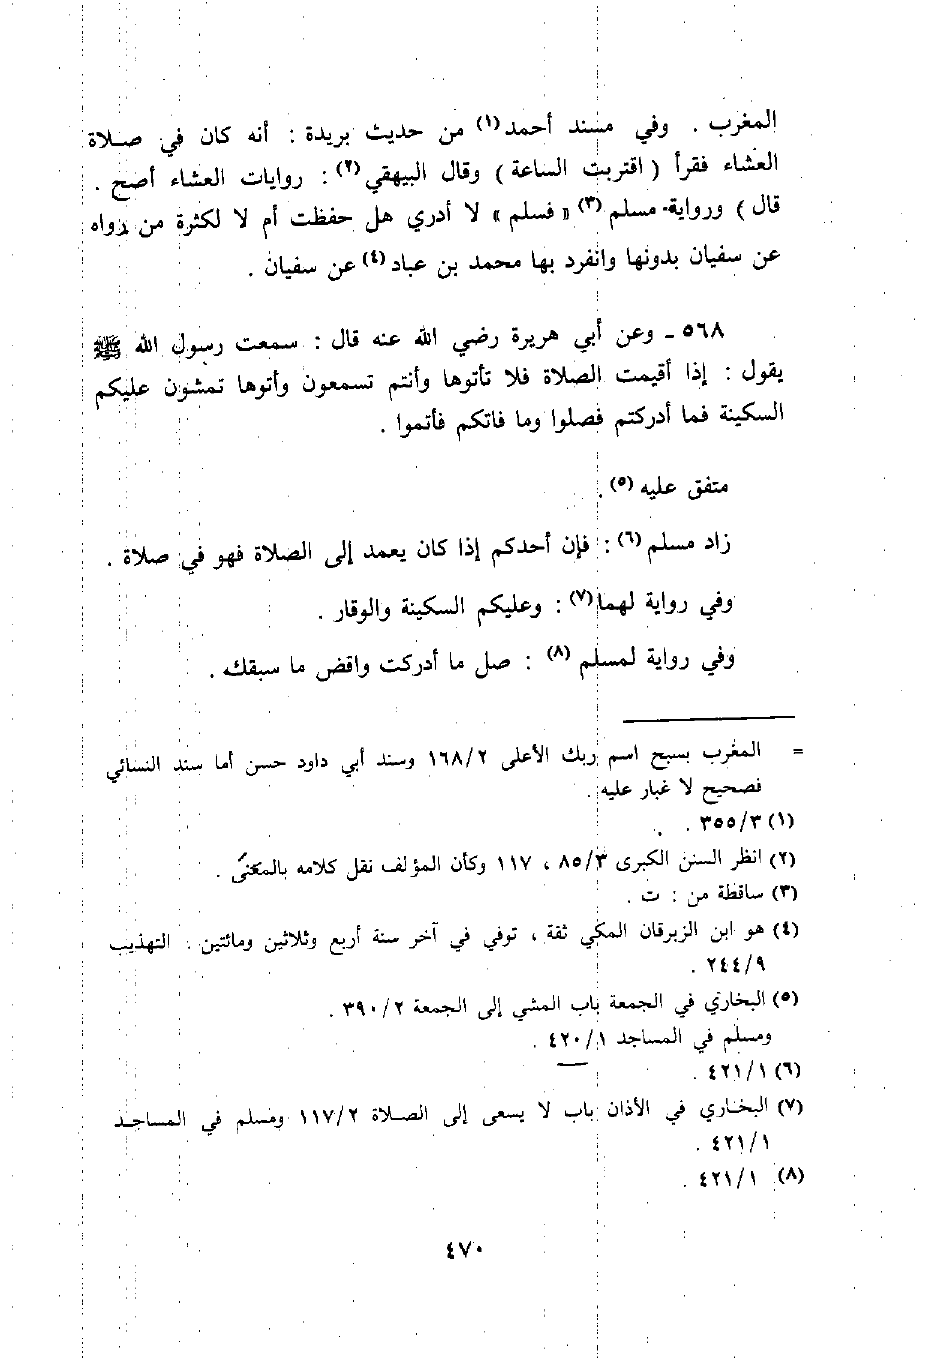 المغرب . وفي مسند أحمد(١) من حديث بريدة : أنه كان في صلاة
العشاء فقرأ ( اقتربت الساعة ) وقال البيهقي(٢) : روايات العشاء أصح .
قال ) ورواية مسلم(٣) « فسلم » لا أدري هل حفظت أم لا لكثرة من رواه
عن سفيان بدونها وانفرد بها محمد بن عباد(٤) عن سفيان .
٥٦٨ ـ وعن أبي هريرة رضي الله عنه قال : سمعت رسول الله ﷺ
يقول : إذا أقيمت الصلاة فلا تأتوها وأنتم تسمعون وأتوها تمشون عليكم
السكينة فما أدركتم فصلوا وما فاتكم فأتموا .
متفق عليه (٥) .
زاد مسلم (٦) : فإن أحدكم إذا كان يعمد إلى الصلاة فهو في صلاة .
وفي رواية لهما(٧) : وعليكم السكينة والوقار .
وفي رواية لمسلم (٨) : صل ما أدركت واقض ما سبقك .
= المغرب بسبح اسم ربك الأعلى ١٦٨/٢ وسند أبي داود حسن أما سند النسائي
فصحيح لا غبار عليه .
(١) ٣٥٥/٣ .
(٢) انظر السنن الكبرى ٨٥/٣ ، ١١٧ وكأن المؤلف نقل كلامه بالمعنى .
(٣) ساقطة من : ت .
(٤) هو ابن الزبرقان المكي ثقة ، توفي في آخر سنة أربع وثلاثين ومائتين . التهذيب
٢٤٤/٩ .
(٥) البخاري في الجمعة باب المشي إلى الجمعة ٣٩٠/٢ .
ومسلم في المساجد ٤٢٠/١ .
(٦) ٤٢١/١ .
(٧) البخاري في الأذان باب لا يسعى إلى الصلاة ١١٧/٢ ومسلم في المساجد
٤٢١/١ .
(٨) ٤٢١/١ .
٤٧٠